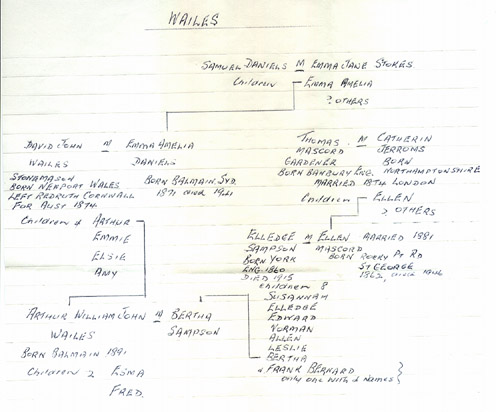 WAILES
SAMUEL DANIELS M EMMA JANE STOKES
Children EMMA AMELIA
? OTHERS
DAVID JOHN M EMMA AMELIA
WAILES DANIELS
STONEMASON
BORN NEWPORT WALES
LEFT REDRUTH CORNWALL
FOR AUST 1874
BORN BALMAIN SYD.
1871
Children 4 ARTHUR
EMMIE
ELSIE
AMY
THOMAS M CATHERIN
MASCORD JERROMS
GARDENER BORN
BORN BANBURY ENG. NORTHAMPTONSHIRE
MARRIED 1874 LONDON
Children ELLEN
? OTHERS
ELLEDGE M ELLEN MARRIED 1881
SAMPSON MASCORD
BORN YORK
ENG 1860
DIED 1915
BORN ROCKY PT RD
ST GEORGE
children 8
SUSANNAH
ELLEDGE
EDWARD
NORMAN
ALLEN
LESLIE
BERTHA
& FRANK BERNARD
only one with 2 names
ARTHUR WILLIAM JOHN M BERTHA
WAILES SAMPSON
BORN BALMAIN 1891
Children 2 ESMA
FRED.